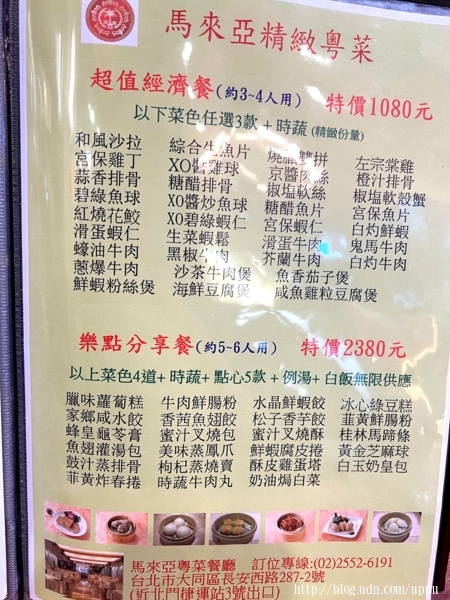 馬來亞精緻粵菜
超值經濟餐(約3~4人用) 特價1080元
以下菜色任選3款+時蔬(精緻份量)
和風沙拉 綜合生魚片 燒臘雙拼 左宗棠雞
宮保雞丁 XO醬雞球 京醬肉絲 橙汁排骨
蒜香排骨 糖醋排骨 椒塩軟絲 椒塩軟殼蟹
碧綠魚球 XO醬炒魚球 糖醋魚片 宮保魚片
紅燒花鮫 XO碧綠蝦仁 宮保蝦仁 白灼鮮蝦
滑蛋蝦仁 生菜蝦鬆 滑蛋牛肉 鬼馬牛肉
蠔油牛肉 黑椒牛肉 芥蘭牛肉 白灼牛肉
蔥爆牛肉 沙茶牛肉煲 魚香茄子煲
鮮蝦粉絲煲 海鮮豆腐煲 咸魚雞粒豆腐煲
樂點分享餐(約5~6人用) 特價2380元
以上菜色4道+時蔬+點心5款+例湯+白飯無限供應
臘味蘿蔔糕 牛肉鮮腸粉 水晶鮮蝦餃 冰心綠豆糕
家鄉咸水餃 香茜魚翅餃 松子香芋餃 韭黃鮮腸粉
蜂皇龜苓膏 蜜汁叉燒包 蜜汁叉燒酥 桂林馬蹄條
魚翅灌湯包 美味蒸鳳爪 鮮蝦腐皮捲 黃金芝麻球
鼓汁蒸排骨 枸杞蒸燒賣 酥皮雞蛋塔 白玉奶皇包
韭黃炸春捲 時蔬牛肉丸 奶油焗白菜
馬來亞粵菜餐廳 訂位專線:(02)2552-6191
台北市大同區長安西路287-2號
(近北門捷運站3號出口)
http://blog.udn.com/uppu